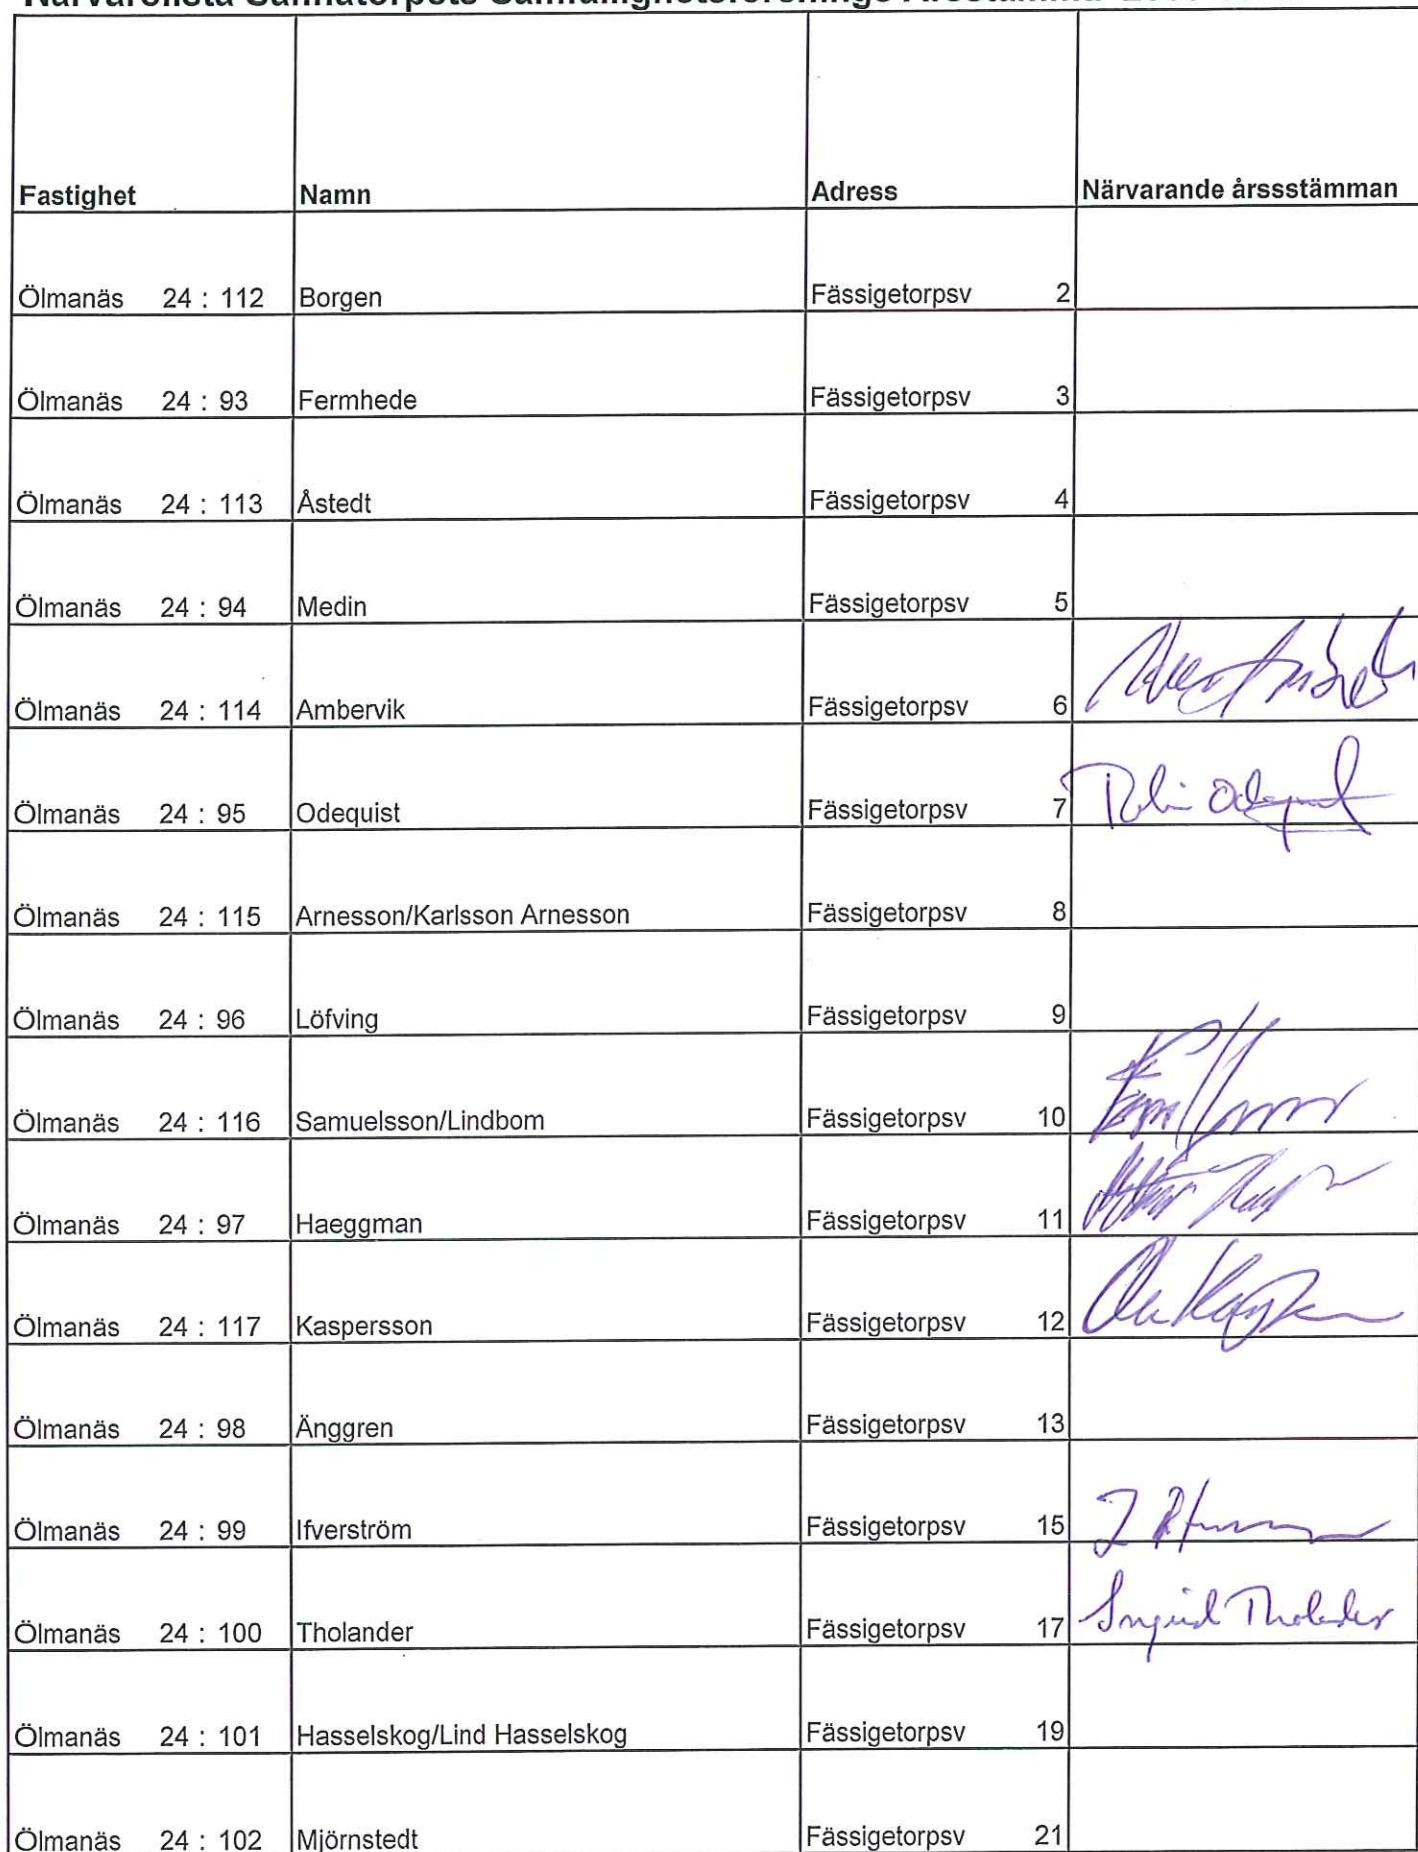 Närvarolista Sannatorpets Samfällighetsförenings Årsstämma
Fastighet Namn Adress Närvarande årssstämman
Ölmanäs 24 : 112 Borgen Fässigetorpsv 2
Ölmanäs 24 : 93 Fermhede Fässigetorpsv 3
Ölmanäs 24 : 113 Åstedt Fässigetorpsv 4
Ölmanäs 24 : 94 Medin Fässigetorpsv 5
Ölmanäs 24 : 114 Ambervik Fässigetorpsv 6
Ölmanäs 24 : 95 Odequist Fässigetorpsv 7
Ölmanäs 24 : 115 Arnesson/Karlsson Arnesson Fässigetorpsv 8
Ölmanäs 24 : 96 Löfving Fässigetorpsv 9
Ölmanäs 24 : 116 Samuelsson/Lindbom Fässigetorpsv 10
Ölmanäs 24 : 97 Haeggman Fässigetorpsv 11
Ölmanäs 24 : 117 Kaspersson Fässigetorpsv 12
Ölmanäs 24 : 98 Änggren Fässigetorpsv 13
Ölmanäs 24 : 99 Ifverström Fässigetorpsv 15
Ölmanäs 24 : 100 Tholander Fässigetorpsv 17 Ingrid Tholander
Ölmanäs 24 : 101 Hasselskog/Lind Hasselskog Fässigetorpsv 19
Ölmanäs 24 : 102 Mjörnstedt Fässigetorpsv 21